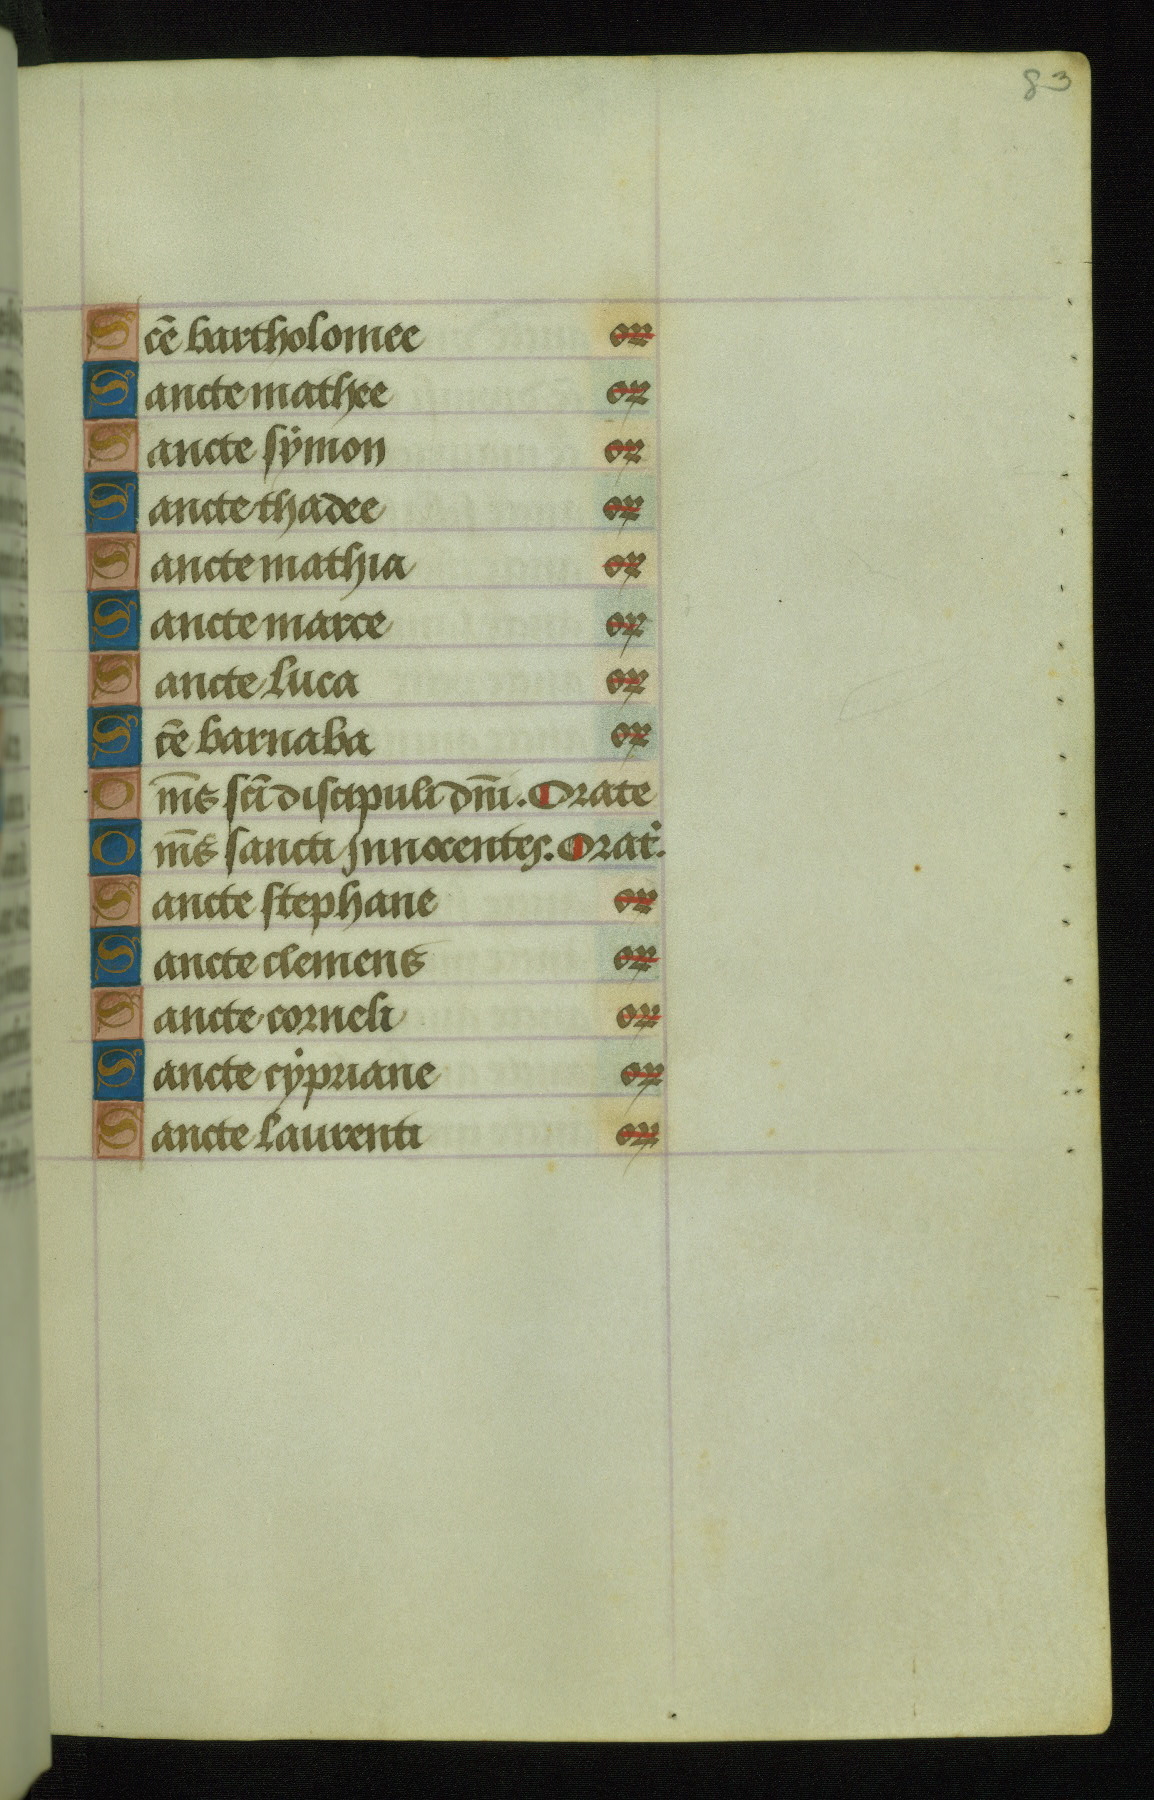 83
Scē bartholomee or
Sancte mathee or
Sancte sẏmon or
Sancte thadee or
Sancte mathia or
Sancte marce or
Sancte luca or
Scē barnaba or
Om̄s sc̄i discipuli dn̄i. Orate
Om̄s sancti Innocentes. Orat.
Sancte stephane or
Sancte clemens or
Sancte corneli or
Sancte cẏpriane or
Sancte laurenti or